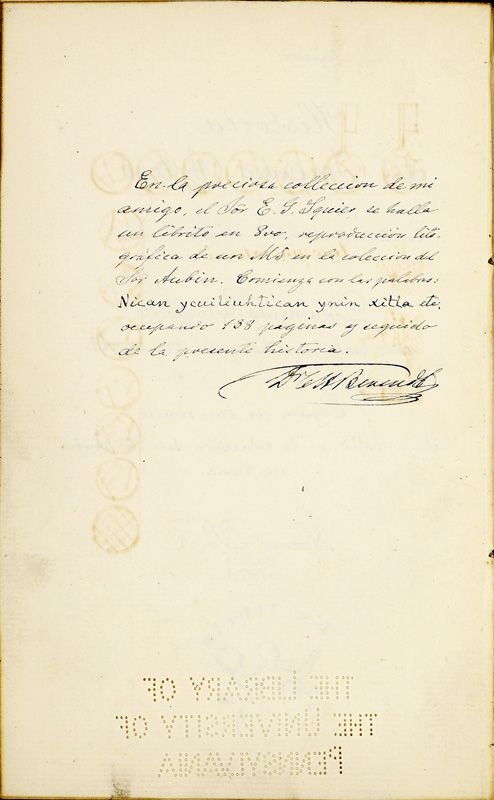 En la preciosa colleccion de mi
amigo, el Sor E. G. Squier se halla
un librito en 8vo, reproduccion lito-
gráfica de un MS en la coleccion del
Sor Aubin. Comienza con las palabras:
Nican ycuiliuhtican ynin xitla etc.
ocupando 138 páginas y seguido
de la presente historia.
Dr C H Berendt
THE LIBRARY OF
THE UNIVERSITY OF
PENNSYLVANIA